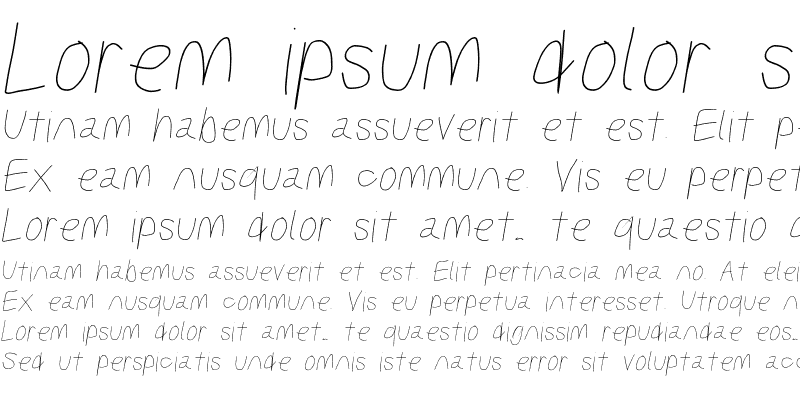 Lorem ipsum dolor s
Utinam habemus assueverit et est. Elit p
Ex eam nusquam commune. Vis eu perpet
Lorem ipsum dolor sit amet.. te quaestio
Utinam habemus assueverit et est. Elit pertinacia mea no. At elei
Ex eam nusquam commune. Vis eu perpetua interesset. Utroque n
Lorem ipsum dolor sit amet.. te quaestio dignissim repudiandae eos..
Sed ut perspiciatis unde omnis iste natus error sit voluptatem acc